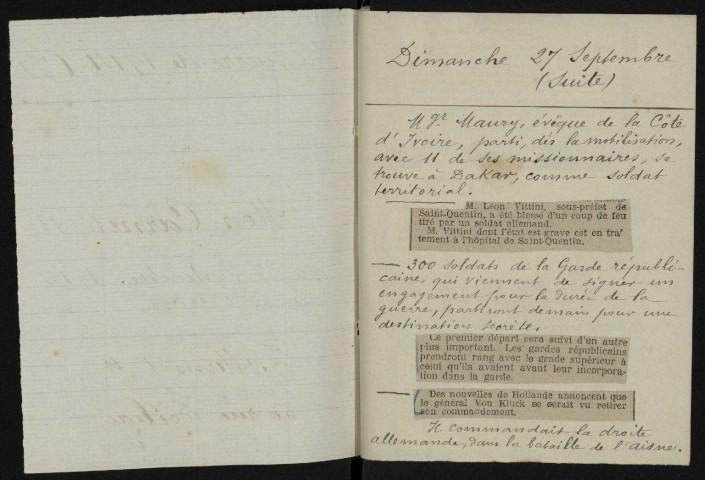 Dimanche 27 Septembre
(Suite)
Mgr Maury, évêque de la Côte
d'Ivoire, parti, dès la mobilisation,
avec 11 de ses missionnaires, se
trouve à Dakar, comme soldat
territorial.
M. Léon Vittini, sous-préfet de
Saint-Quentin, a été blessé d'un coup de feu
tiré par un soldat allemand.
M. Vittini dont l'état est grave est en trai
tement à l'hôpital de Saint-Quentin.
— 300 soldats de la Garde républi-
caine, qui viennent de signer un
engagement pour la durée de la
guerre, partiront demain pour une
destination secrète.
Ce premier départ sera suivi d'un autre
plus important. Les gardes républicains
prendront rang avec le grade supérieur à
celui qu'ils avaient avant leur incorpora-
tion dans la garde.
— Des nouvelles de Hollande annoncent que
le général Von Kluck se serait vu retirer
son commandement.
Il commandait la droite
allemande, dans la bataille de l'Aisne.